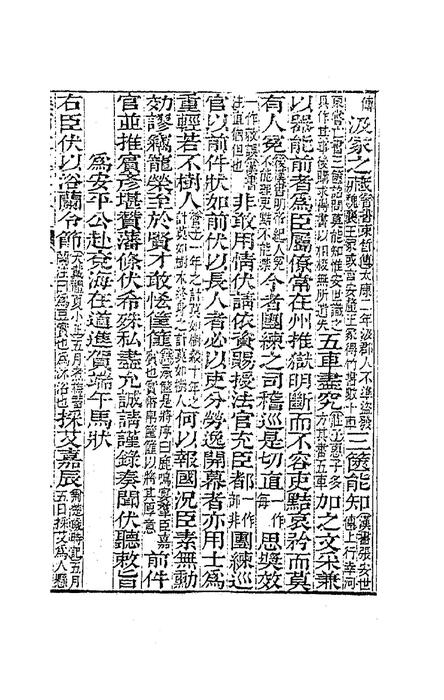 傳
汲冢之藏晉書束皙傳太康二年汲郡人不準盜發魏襄王冢或言安釐王冢得竹書數十車三篋能知漢書張安世傳上行幸河
東嘗亡書三篋詔問莫能知惟安世識之具作其事後購求得書以相校無所遺失五車盡究莊子惠子多方其書五車加之文采兼
以器能前者為臣屬僚常在州推獄明斷而不容吏黠哀矜而莫
有人冤後漢書明帝紀人冤不能理吏黠不能禁今者團練之司稽巡是切道一作每思奬效
一作敎誤英華注道個但也非敢用情伏請依資賜授法官充臣都一作部非團練巡
官以前件狀如前伏以長人者必以吏分勞逸開幕者亦用士為
重輕若不樹人管子一年之計莫如樹穀十年之計莫如樹木終身之計莫如樹人何以報國況臣素無勳
効謬竊寵榮至於賓才敢怪篚前件
官並推賓彥堪贊藩條伏希殊私盡允誠請謹錄奏聞伏聽敕旨
為安平公赴兗海在道進賀端午馬狀
右臣伏以浴蘭令節大戴禮夏小正五月蓄蘭為沐浴也採艾嘉辰荊楚歲時記五月五日採艾為人懸